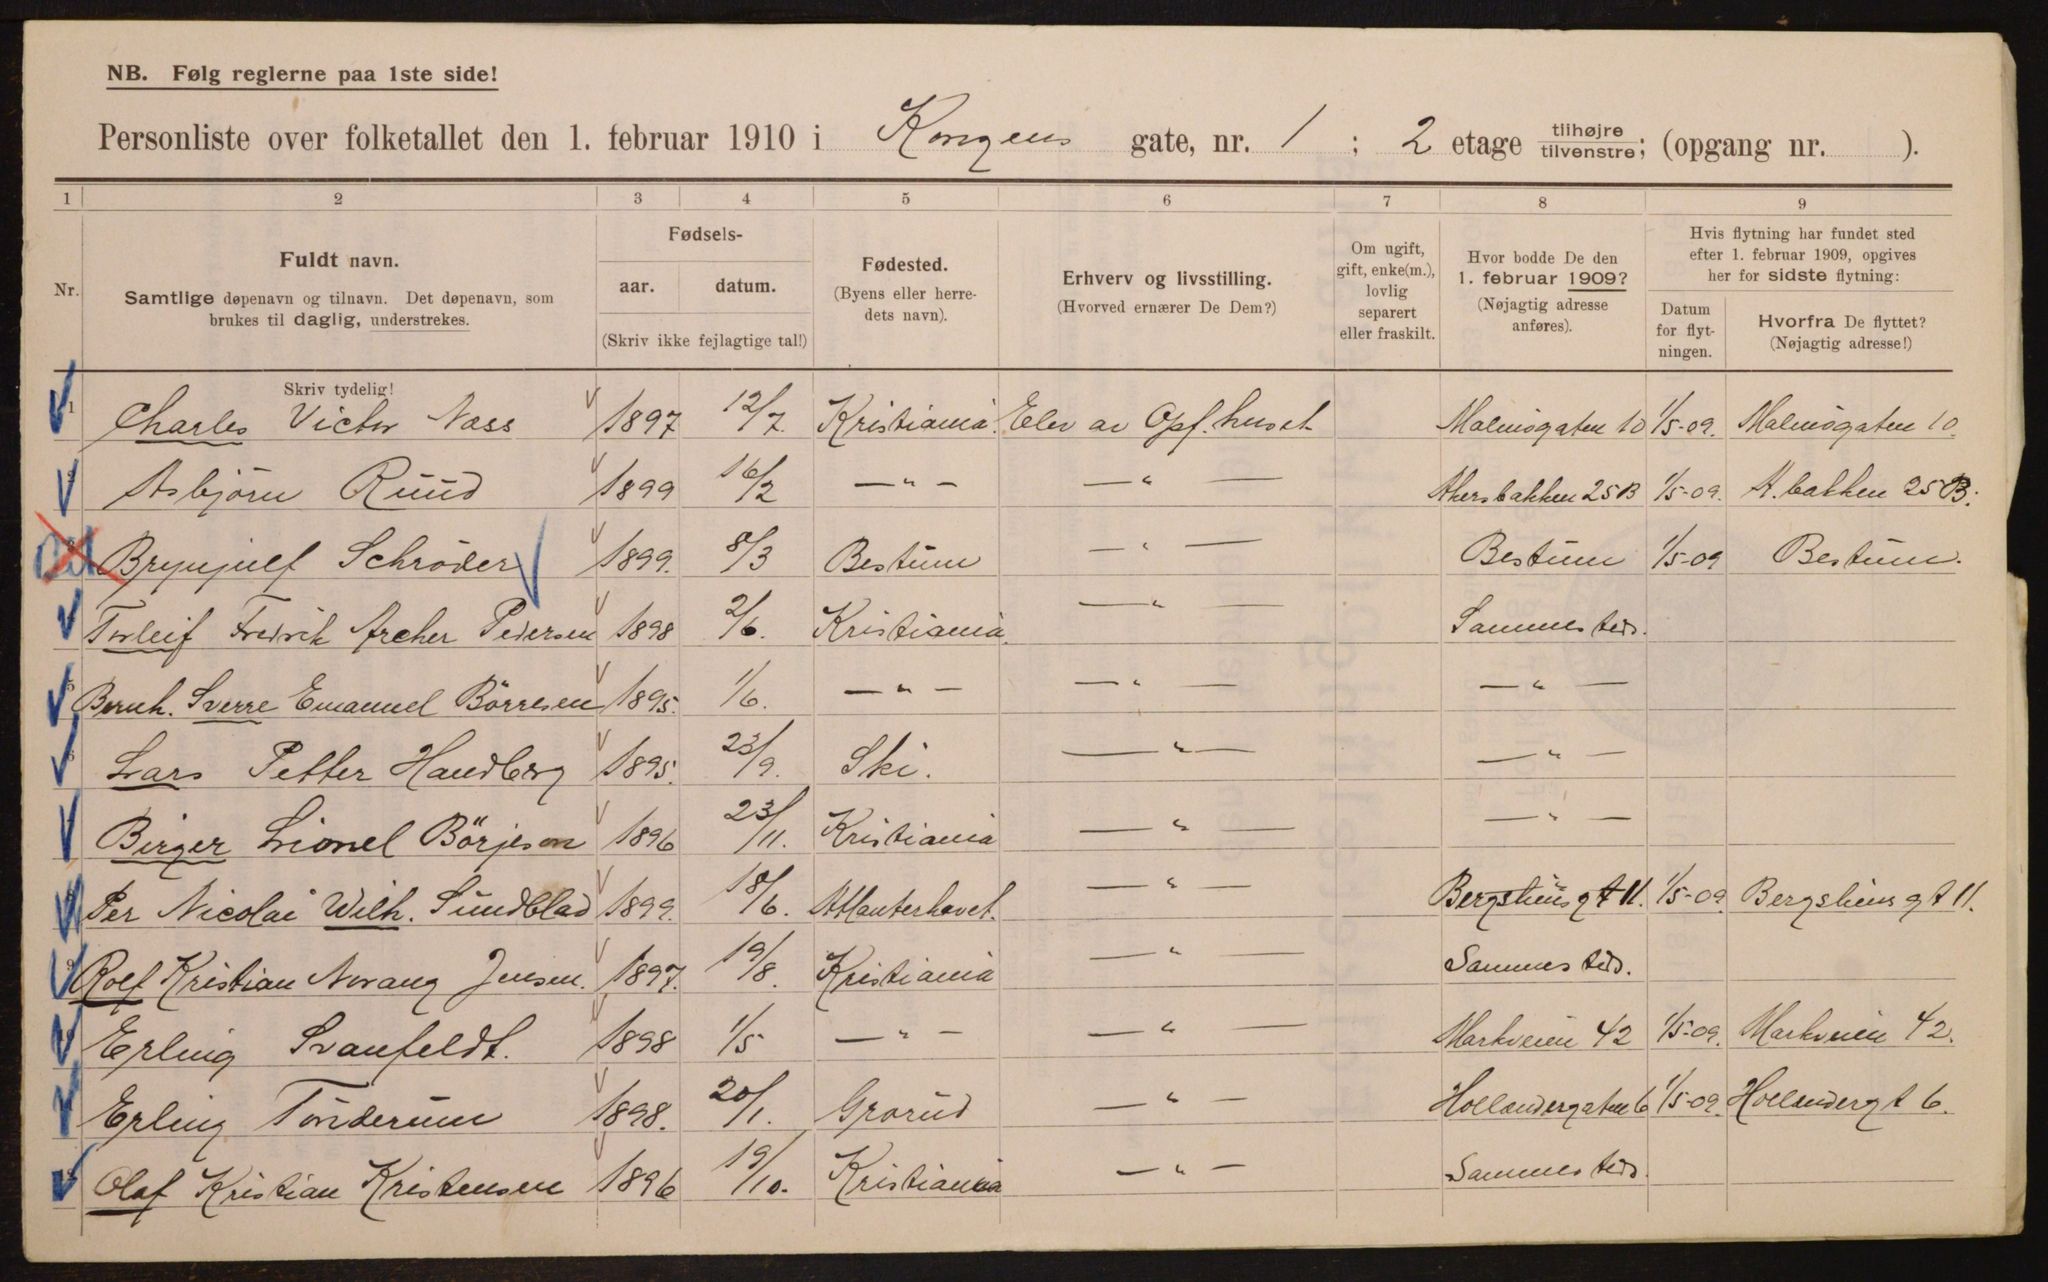 NB. Følg reglerne paa 1ste side!
Personliste over folketallet den 1. februar 1910 i Kongens gate, nr. 1 ; 2 etage tilhøjre/tilvenstre; (opgang nr. ).
1 2 3 4 5 6 7 8 9
Nr.
Fuldt navn.
Samtlige døpenavn og tilnavn. Det døpenavn, som
brukes til daglig, understrekes.
Skriv tydelig!
Fødsels-
aar. datum.
(Skriv ikke fejlagtige tal!)
Fødested.
(Byens eller herre-
dets navn).
Erhverv og livsstilling.
(Hvorved ernærer De Dem?)
Om ugift,
gift, enke(m.),
lovlig
separert
eller fraskilt.
Hvor bodde De den
1. februar 1909?
(Nøjagtig adresse
anføres).
Hvis flytning har fundet sted
efter 1. februar 1909, opgives
her for sidste flytning:
Datum
for flyt-
ningen.
Hvorfra De flyttet?
(Nøjagtig adresse!)
1 Charles Victor Næss 1897 12/7 Kristiania. Elev av Opf. huset Malmøgaten 10 1/5-09. Malmøgaten 10.
Asbjörn Ruud 1899 16/2 —"— —"— Akersbakken 25B 1/5-09. A.bakken 25B.
Brynjulf Schröder 1899. 8/3 Bestum —"— Bestum 1/5-09 Bestum.
Torleif Fredrik Archer Pedersen 1898 2/6. Kristiania. —"— Sammesteds.
5 Bernh. Sverre Emanuel Börresen 1895. 1/6. —"— —"— —"—
Lars Petter Handberg 1895. 23/9. Ski. —"— —"—
Birger Lionel Börjeson 1896 23/11. Kristiania —"— —"—
Per Nicolai Wilh. Sundblad 1899. 18/6. Atlanterhavet. —"— Bergsliens gt 11. 1/5-09. Bergsliens gt 11.
9 Rolf Kristian Norang Jensen. 1897. 19/8. Kristiania —"— Sammesteds.
Erling Svanfeldt. 1898 1/5 —"— —"— Markveien 42 1/5-09. Markveien 42.
Erling Tönderum 1898. 20/1. Grorud —"— Hollendergaten 6 1/5-09. Hollendergt 6.
Olaf Kristian Kristensen 1896 19/10. Kristiania —"— Sammesteds.